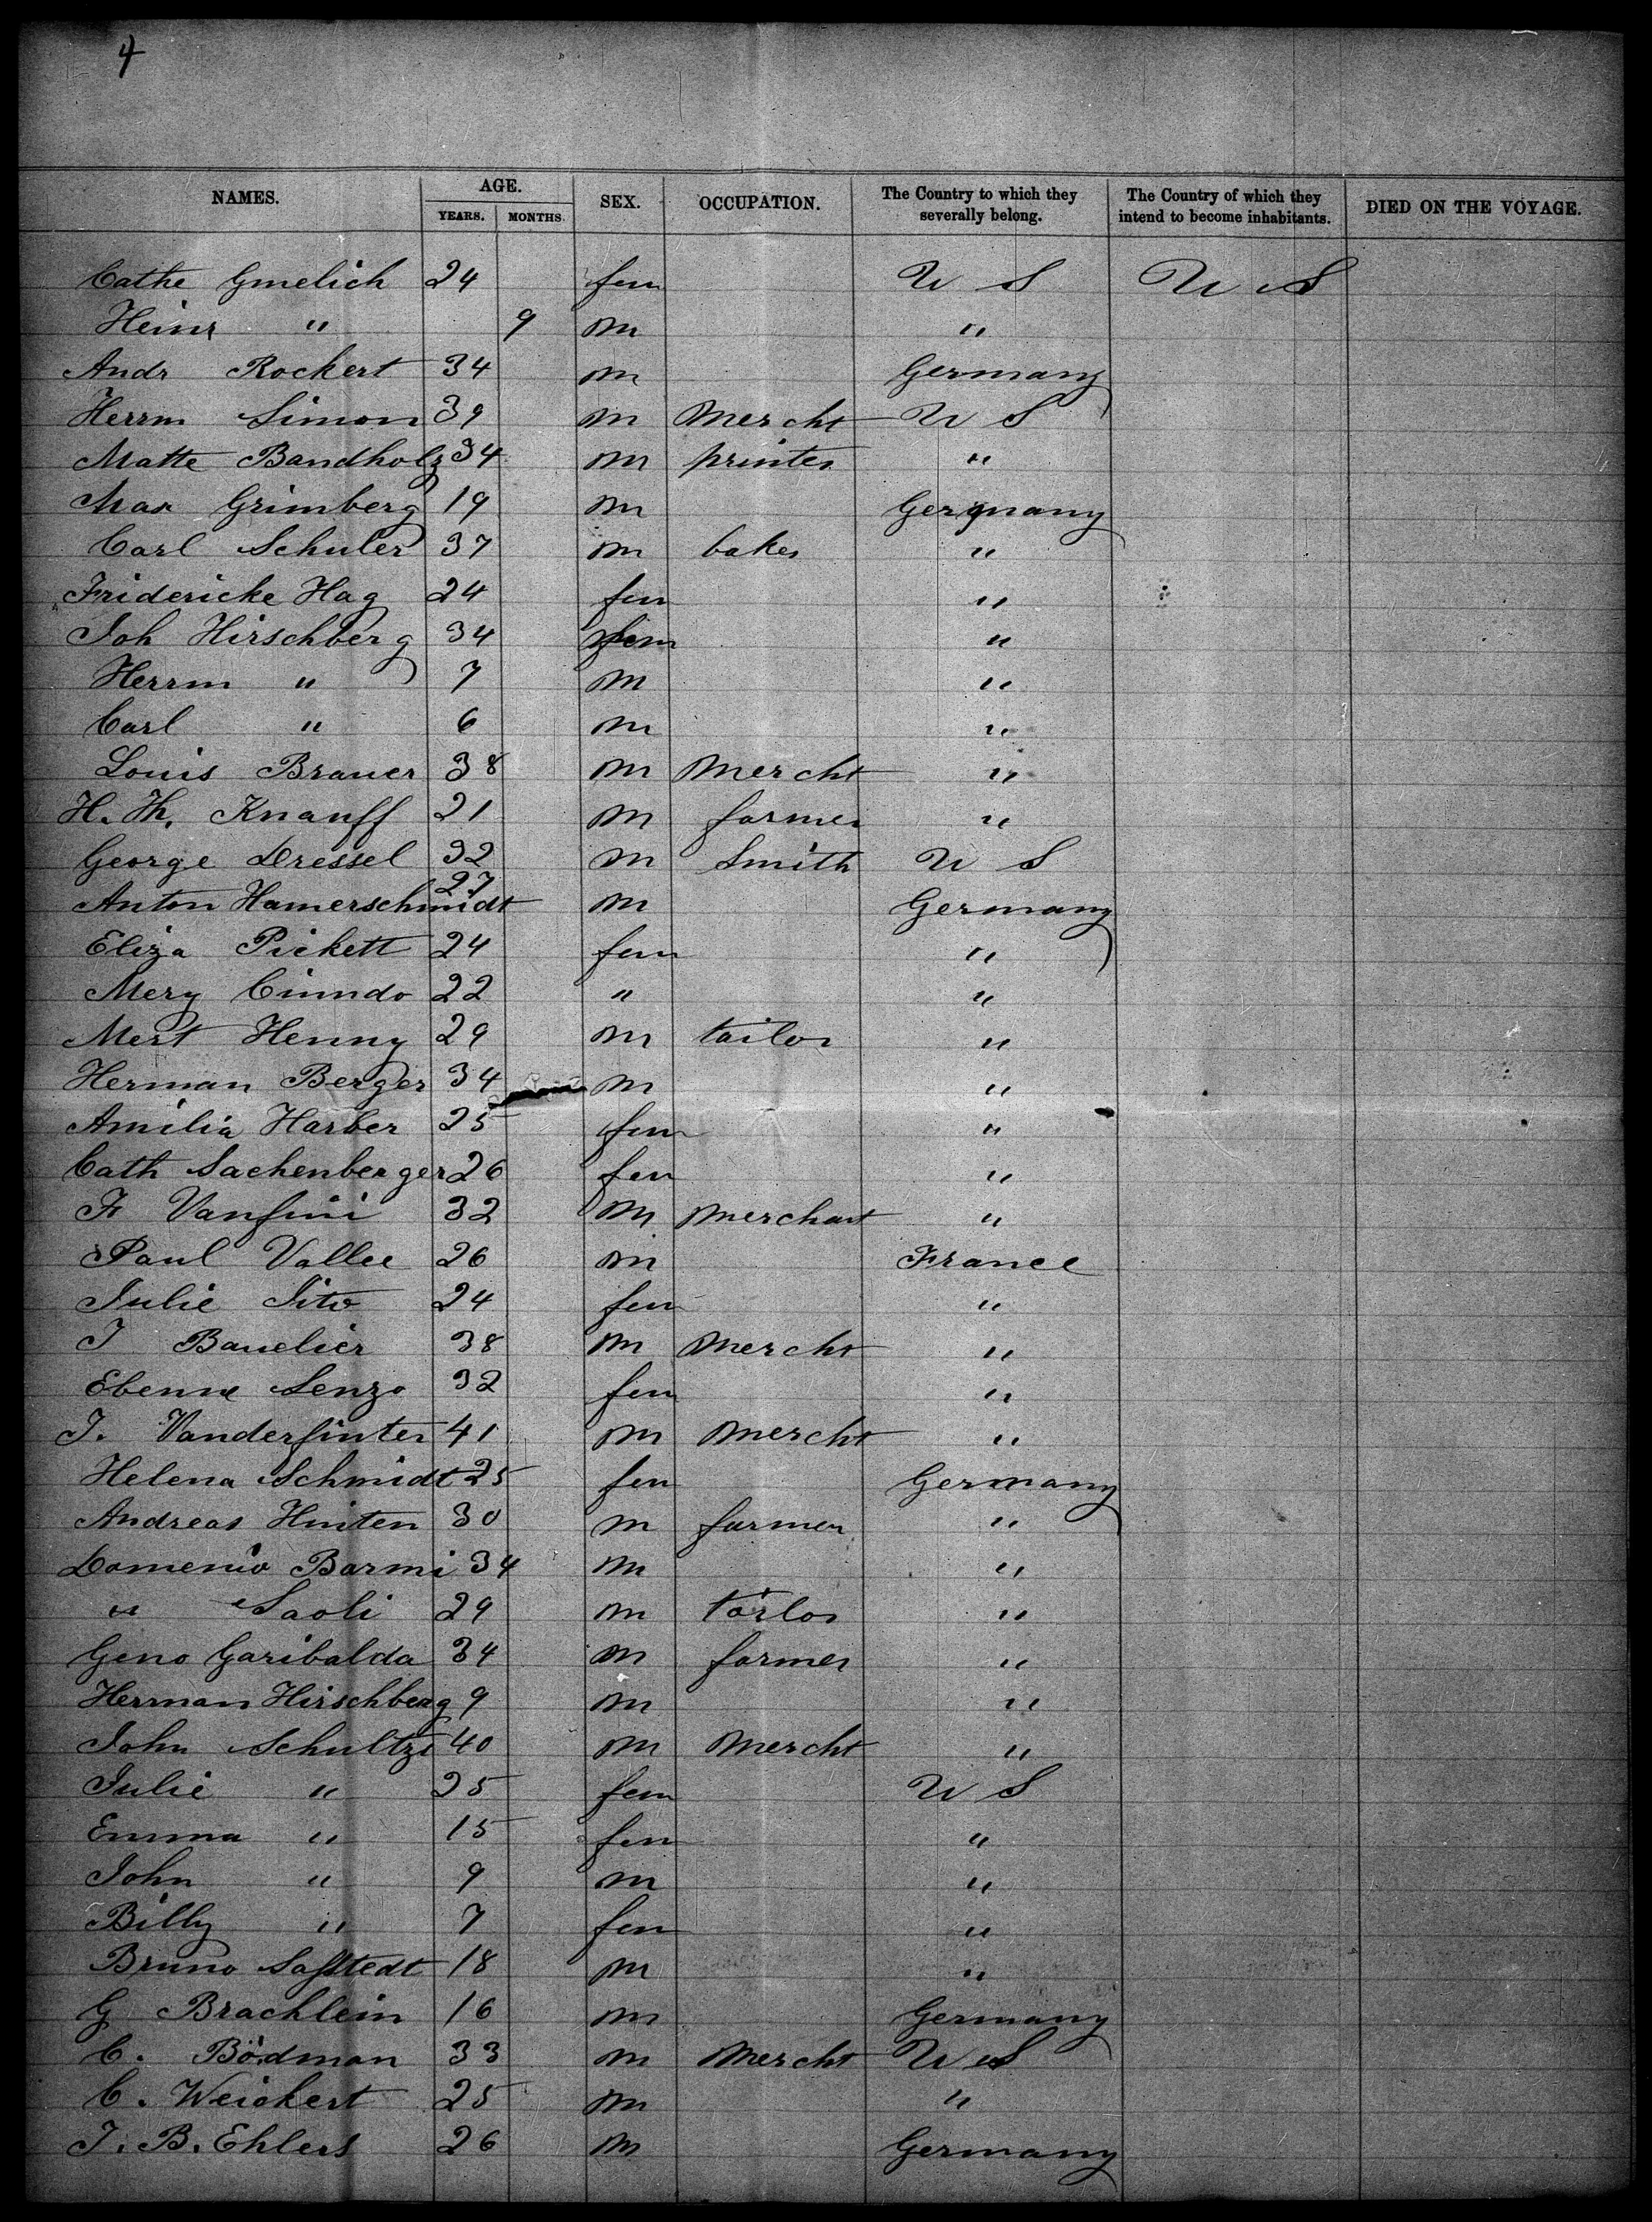 4
NAMES. AGE. YEARS. MONTHS. SEX. OCCUPATION. The Country to which they severally belong. The Country of which they intend to become inhabitants. DIED ON THE VOYAGE.
Cathe Gmelich 24 fem U S U S
Heinr " 9 m "
Andr Rockert 34 m Germany
Herrm Simon 39 m Mercht U S
Matte Bandholz 34 m printer "
Max Grimberg 19 m Germany
Carl Schuler 37 m baker "
Fridericke Hag 24 fem "
Joh Hirschberg 34 fem "
Herrm " 7 m "
Carl " 6 m "
Louis Brauer 38 m Mercht "
H. Th. Knauff 21 m farmer "
George Dressel 32 m Smith U S
Anton Hamerschmidt 27 m Germany
Eliza Pickett 24 fem "
Mery 22 " "
Mert Henny 29 m tailor "
Herman Berger 34 m "
Amilia Harber 25 fem "
Cath Sachenberger 26 fem "
Fr 32 m merchant "
Paul Vallee 26 m France
Julie 24 fem "
J Banelier 38 m Mercht "
Senzo 32 fem "
J. Vanderfinter 41 m Mercht "
Helena Schmidt 25 fem Germany
Andreas Hinten 30 m farmer "
Domenio Barmi 34 m "
" Saoli 29 m tarlor "
Geno Garibalda 34 m farmer "
Herman Hirschberg 9 m "
John Schultze 40 m Mercht "
Julie " 25 fem U S
Emma " 15 fem "
John " 9 m "
Billy " 7 fem "
Bruno 18 m "
G Brachlein 16 m Germany
C. Bödman 33 m Mercht U S
C. Weickert 25 m "
J. B. Ehlers 26 m Germany